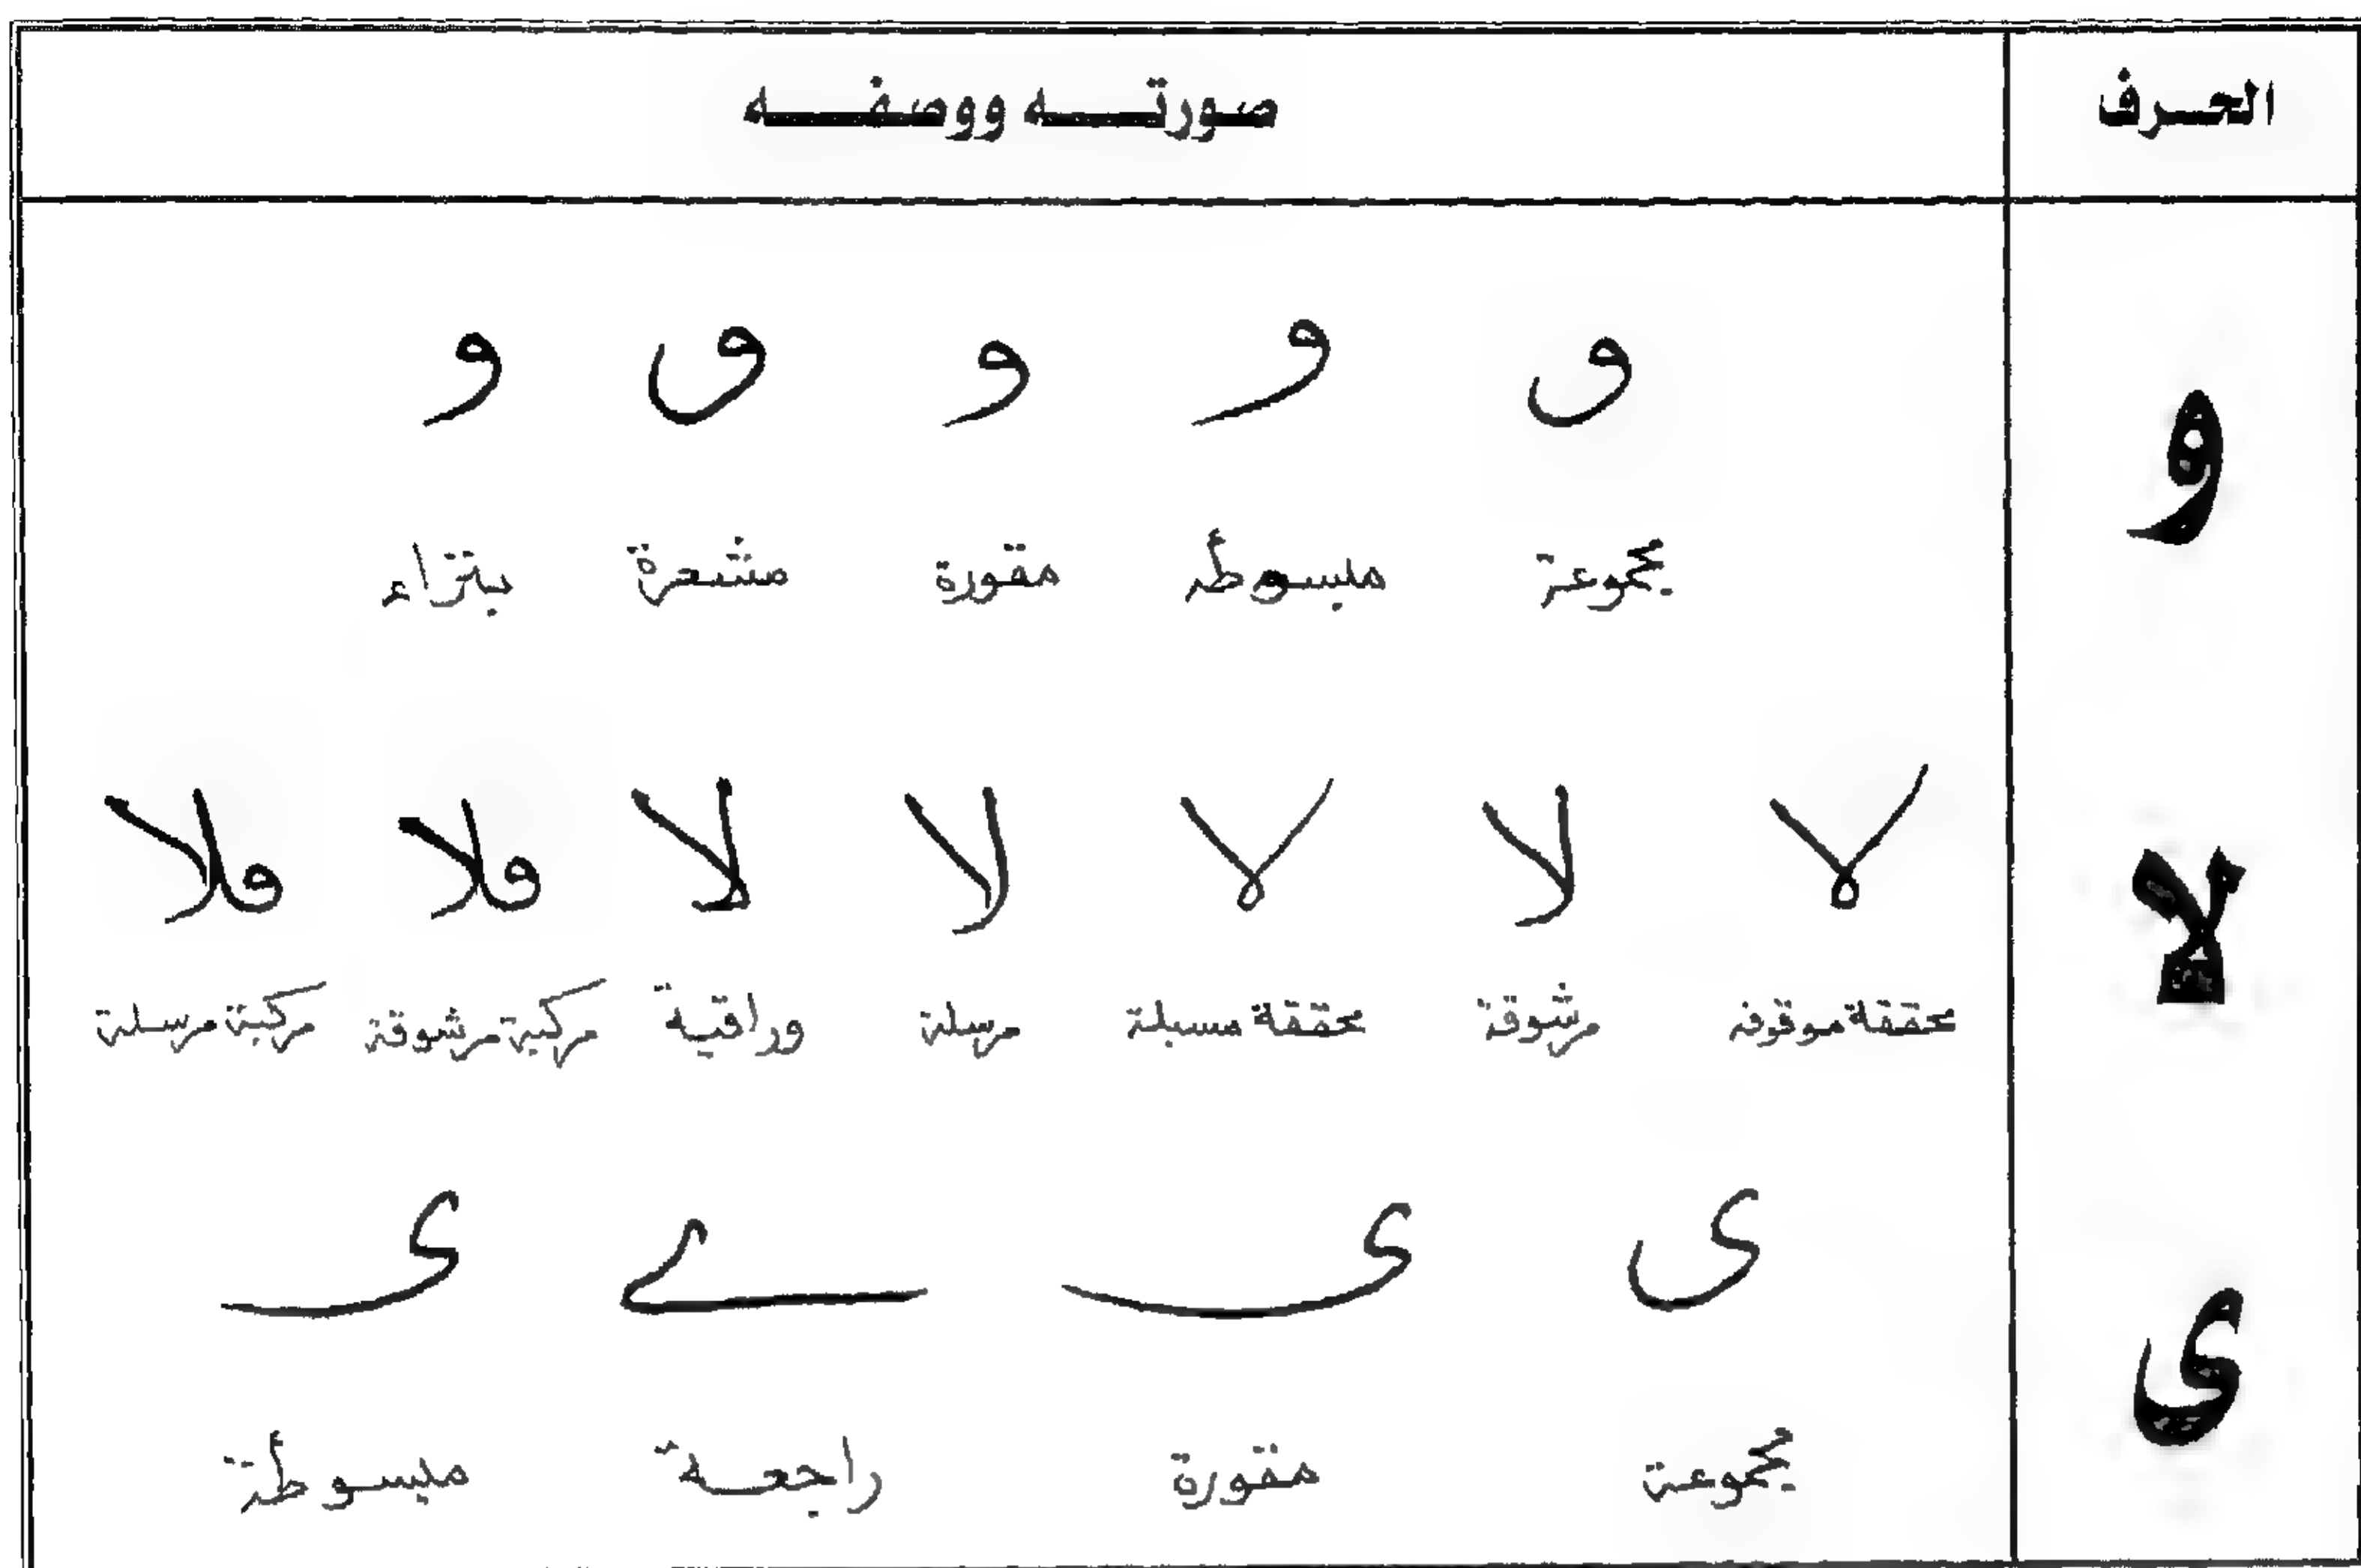 الحرف صورته ووصفه
و و و و و و
مجموعة مبسوطة مقورة مشعرة بتراء
لا لا لا لا لا لا فلا فلا
محققة موقوفة مرشوقة محققة مسبلة مرسلة وراقية مركبة مرشوقة مركبة مرسلة
ى ى ى ے ى
مجموعة مقورة راجعة مبسوطة